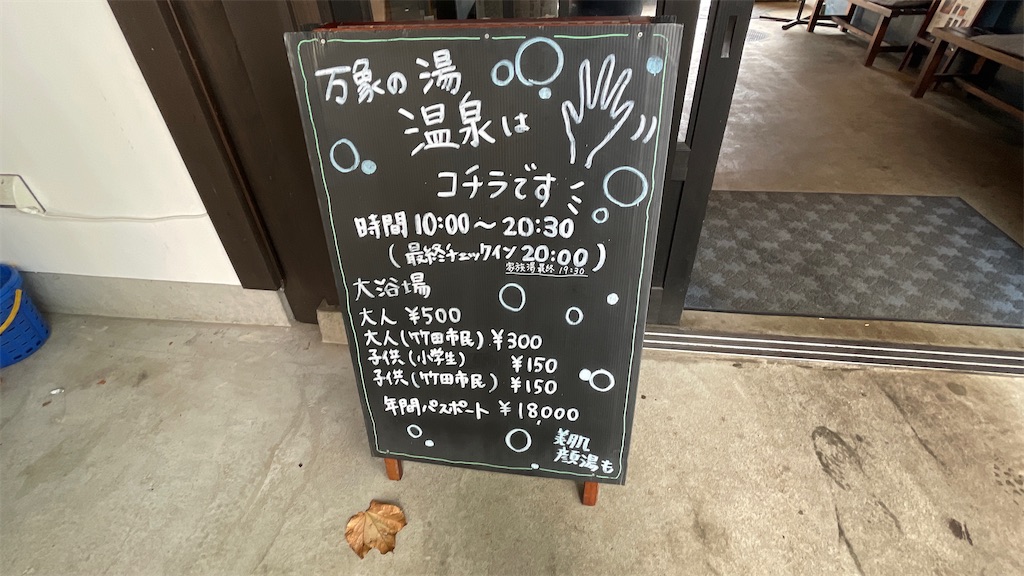 万象の湯
温泉は
コチラです
時間 10:00～20:30
(最終チェックイン 20:00)
家族湯最終 19:30
大浴場
大人 ¥500
大人(竹田市民) ¥300
子供(小学生) ¥150
子供(竹田市民) ¥150
年間パスポート ¥18,000
美肌
顔湯も